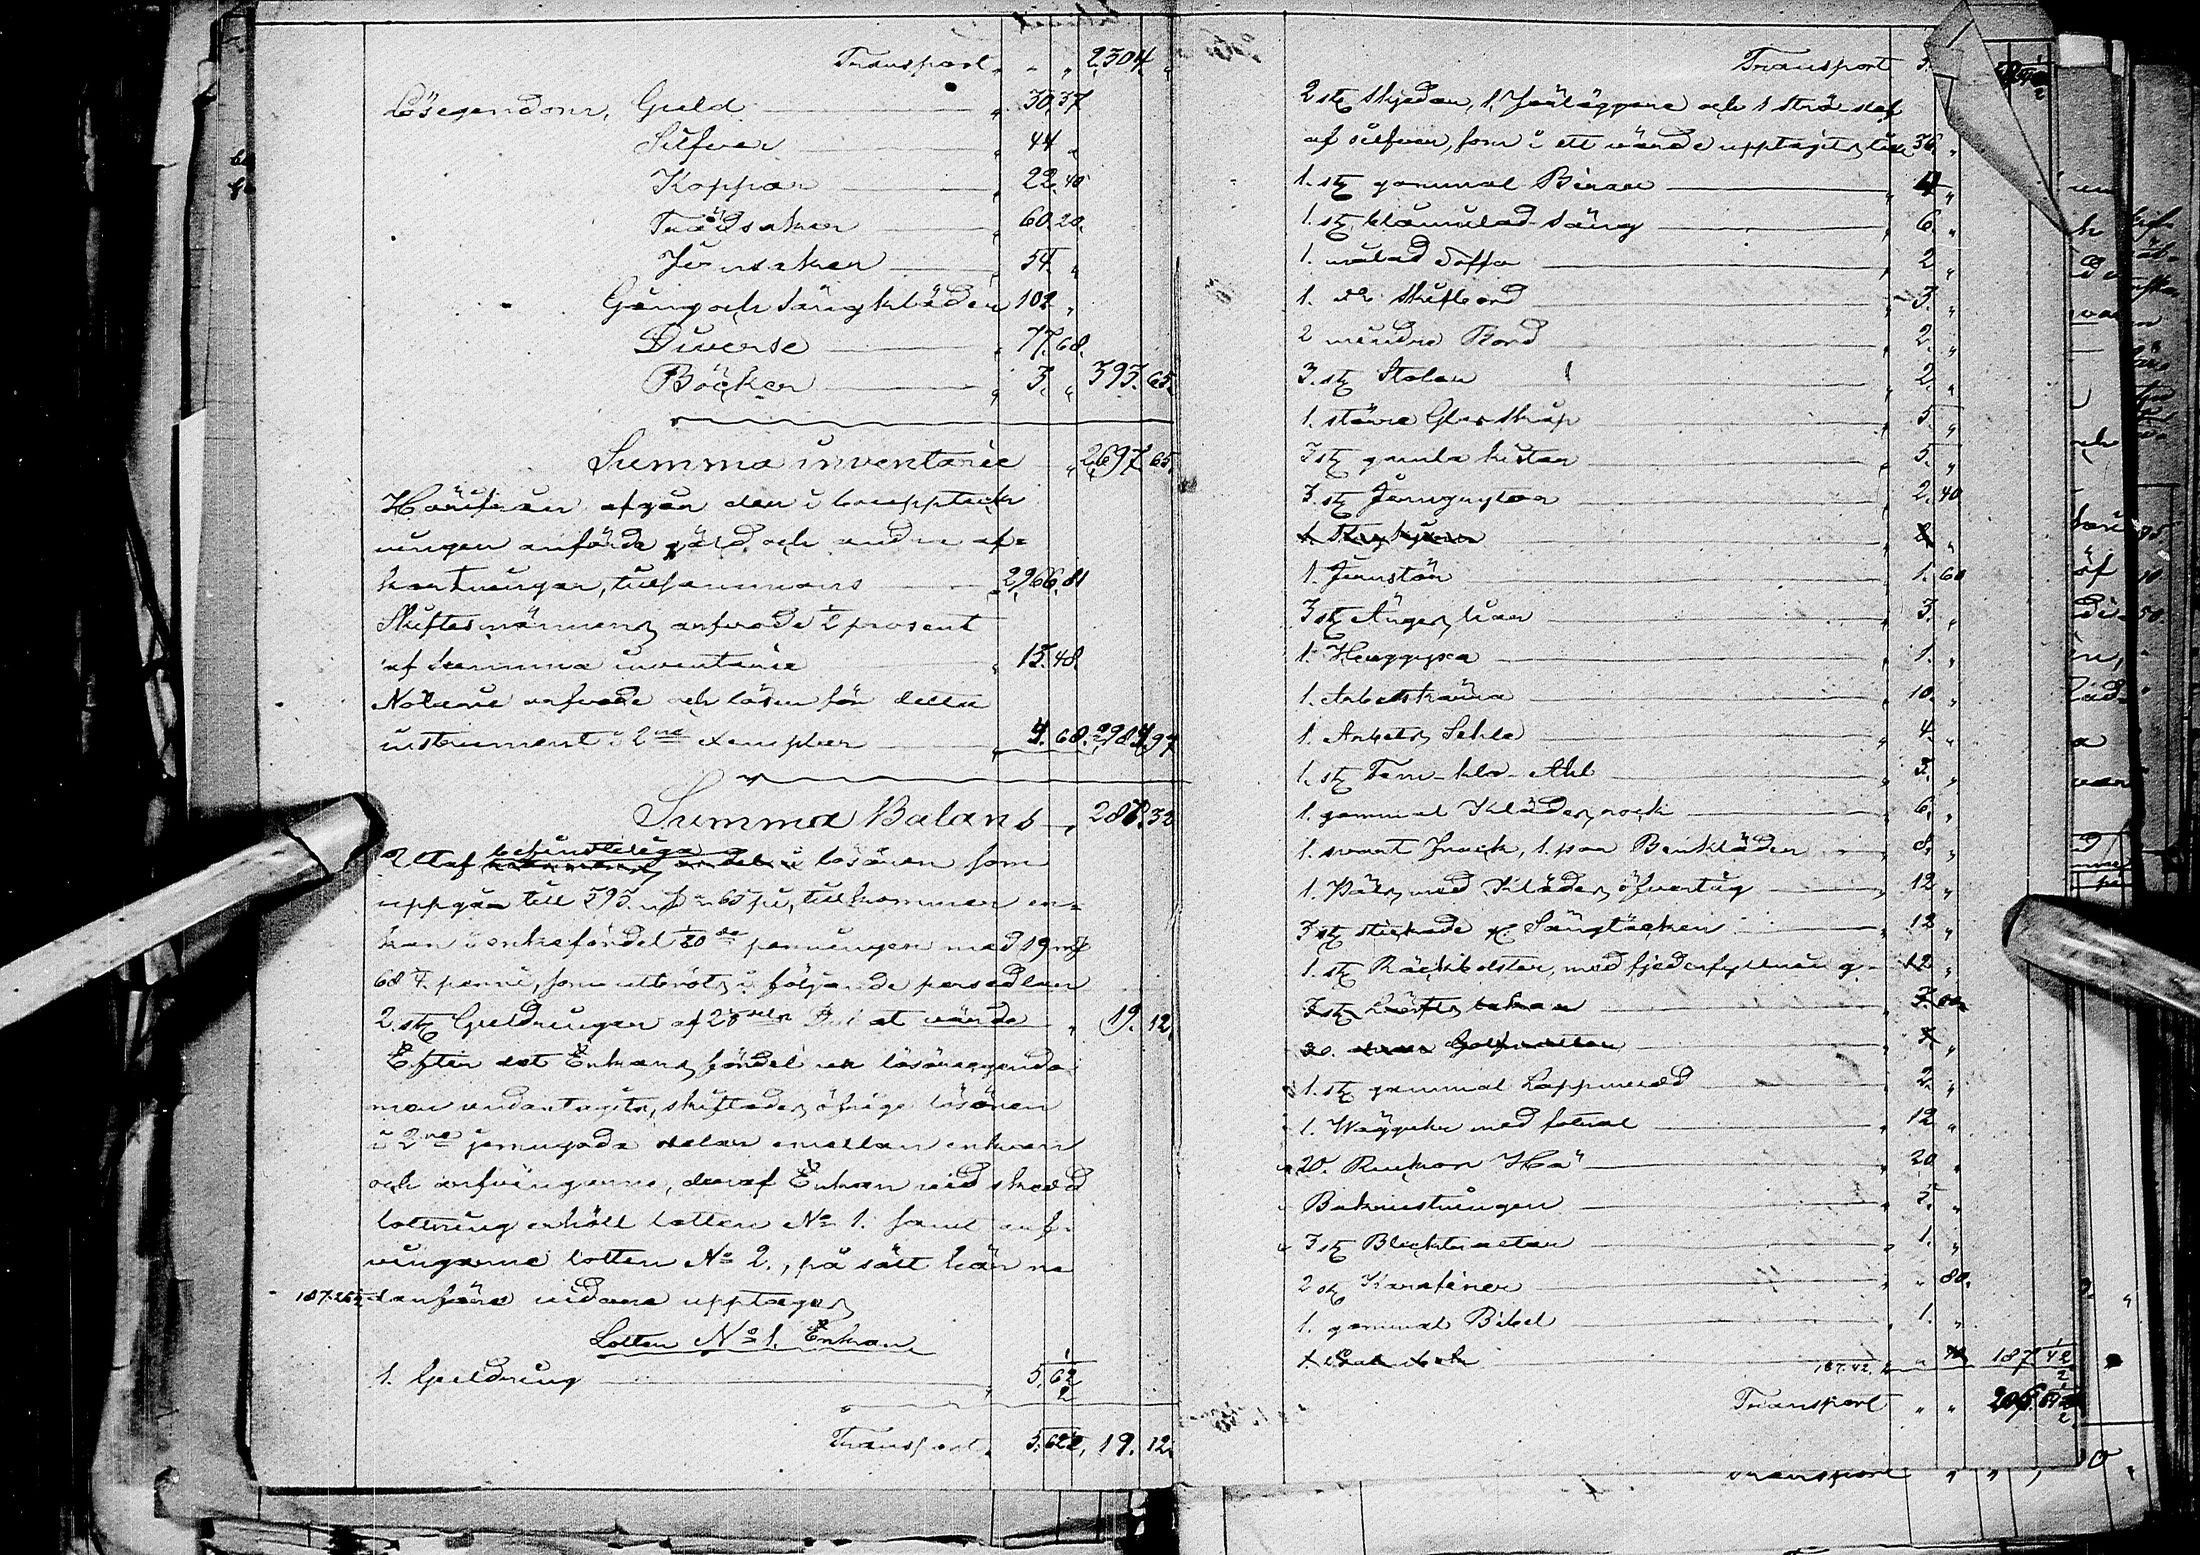 Transport " " " 2,304. "
Lösegendom, Guld " 30.37
Silfver " 44 "
Koppar " 22.40
Trädsaker " 60.20.
Jernsaker " 54. "
Gång och Sängkläder 102 "
Diverse " 77.68.
Böcker " 3. " 393.65.
Summa inventarie " 2,697.65.
Härifrån afgår den i bouppteck
ningen anförde gäld och andra af=
kortningar, tillsammans 2,966.81
Skiftesmännens arfvode ½ procent
af Summa inventarie " 13.48
Notarie arfvode och lösen för detta
instrument i 2ne exemplar " 4.68. 2,984.97
Summa Balans " 287.32
Utaf befintelige lösören som
uppgår till 393 mk 65 pi, tillkommer en=
kan i enkefördel 1/20 de penningen med 19 mk
68 ¼ penni, som utbröts i följande persedlar
2. st. Guldringar af värde " 19. 12.
Efter det Enkans fördel ur lösöreegendo
men undantagits, skiftades öfrige lösören
i 2ne jemngoda delar emellan enkan
och arfvingarne, deraf Enkan vid skedd
lottning erhöll lotten No 1. samt arf=
vingarne lotten No 2., på sätt här ne
danföre vidare upptages
Lotten No 1. Enkan
1. Guldring " 5.62 ½
Transport " 5.62 ½ 19. 12.
Transport 5.
2 st skedar, 1. Förläggare och 1 strö sked
af silfver, som i ett värde upptagits till 36. "
1. st gammal Byrå " 4 "
1. st blåmålad säng " 6. "
1. målad Soffa " 2 "
1. do Skifbord " 3. "
2 mindre Bord " 2. "
3. st Stolar " 2. "
1. större Glas Skåp " 5. "
3 st gamla kistor " 5. "
3. st Jerngrytor " 2.40
1. Jernstör " 1.60
3 st Ängesliar " 3. "
1. Huggyxa " 1. "
1. Arbetskärra " 10. "
1. Arbets Sehla " 4. "
1. gammal Klädesrock " 6. "
1. svart Frack, 1. par Benkläder " 8. "
1. Päls med Klädes öfvertyg " 12 "
3 st stickade Sängtäcken " 12 "
1. st Räckbolster, med fjederfyllning " 12 "
1. st gammal " 2. "
1. Väggur med foderal " 12 "
20. Hö " 20 "
" 5. "
3 st " 1. "
2 st Karafiner " " 80.
1. gammal Bibel " 1. "
187.42. 187.42 ½
Transport " " 206.
Transport " "